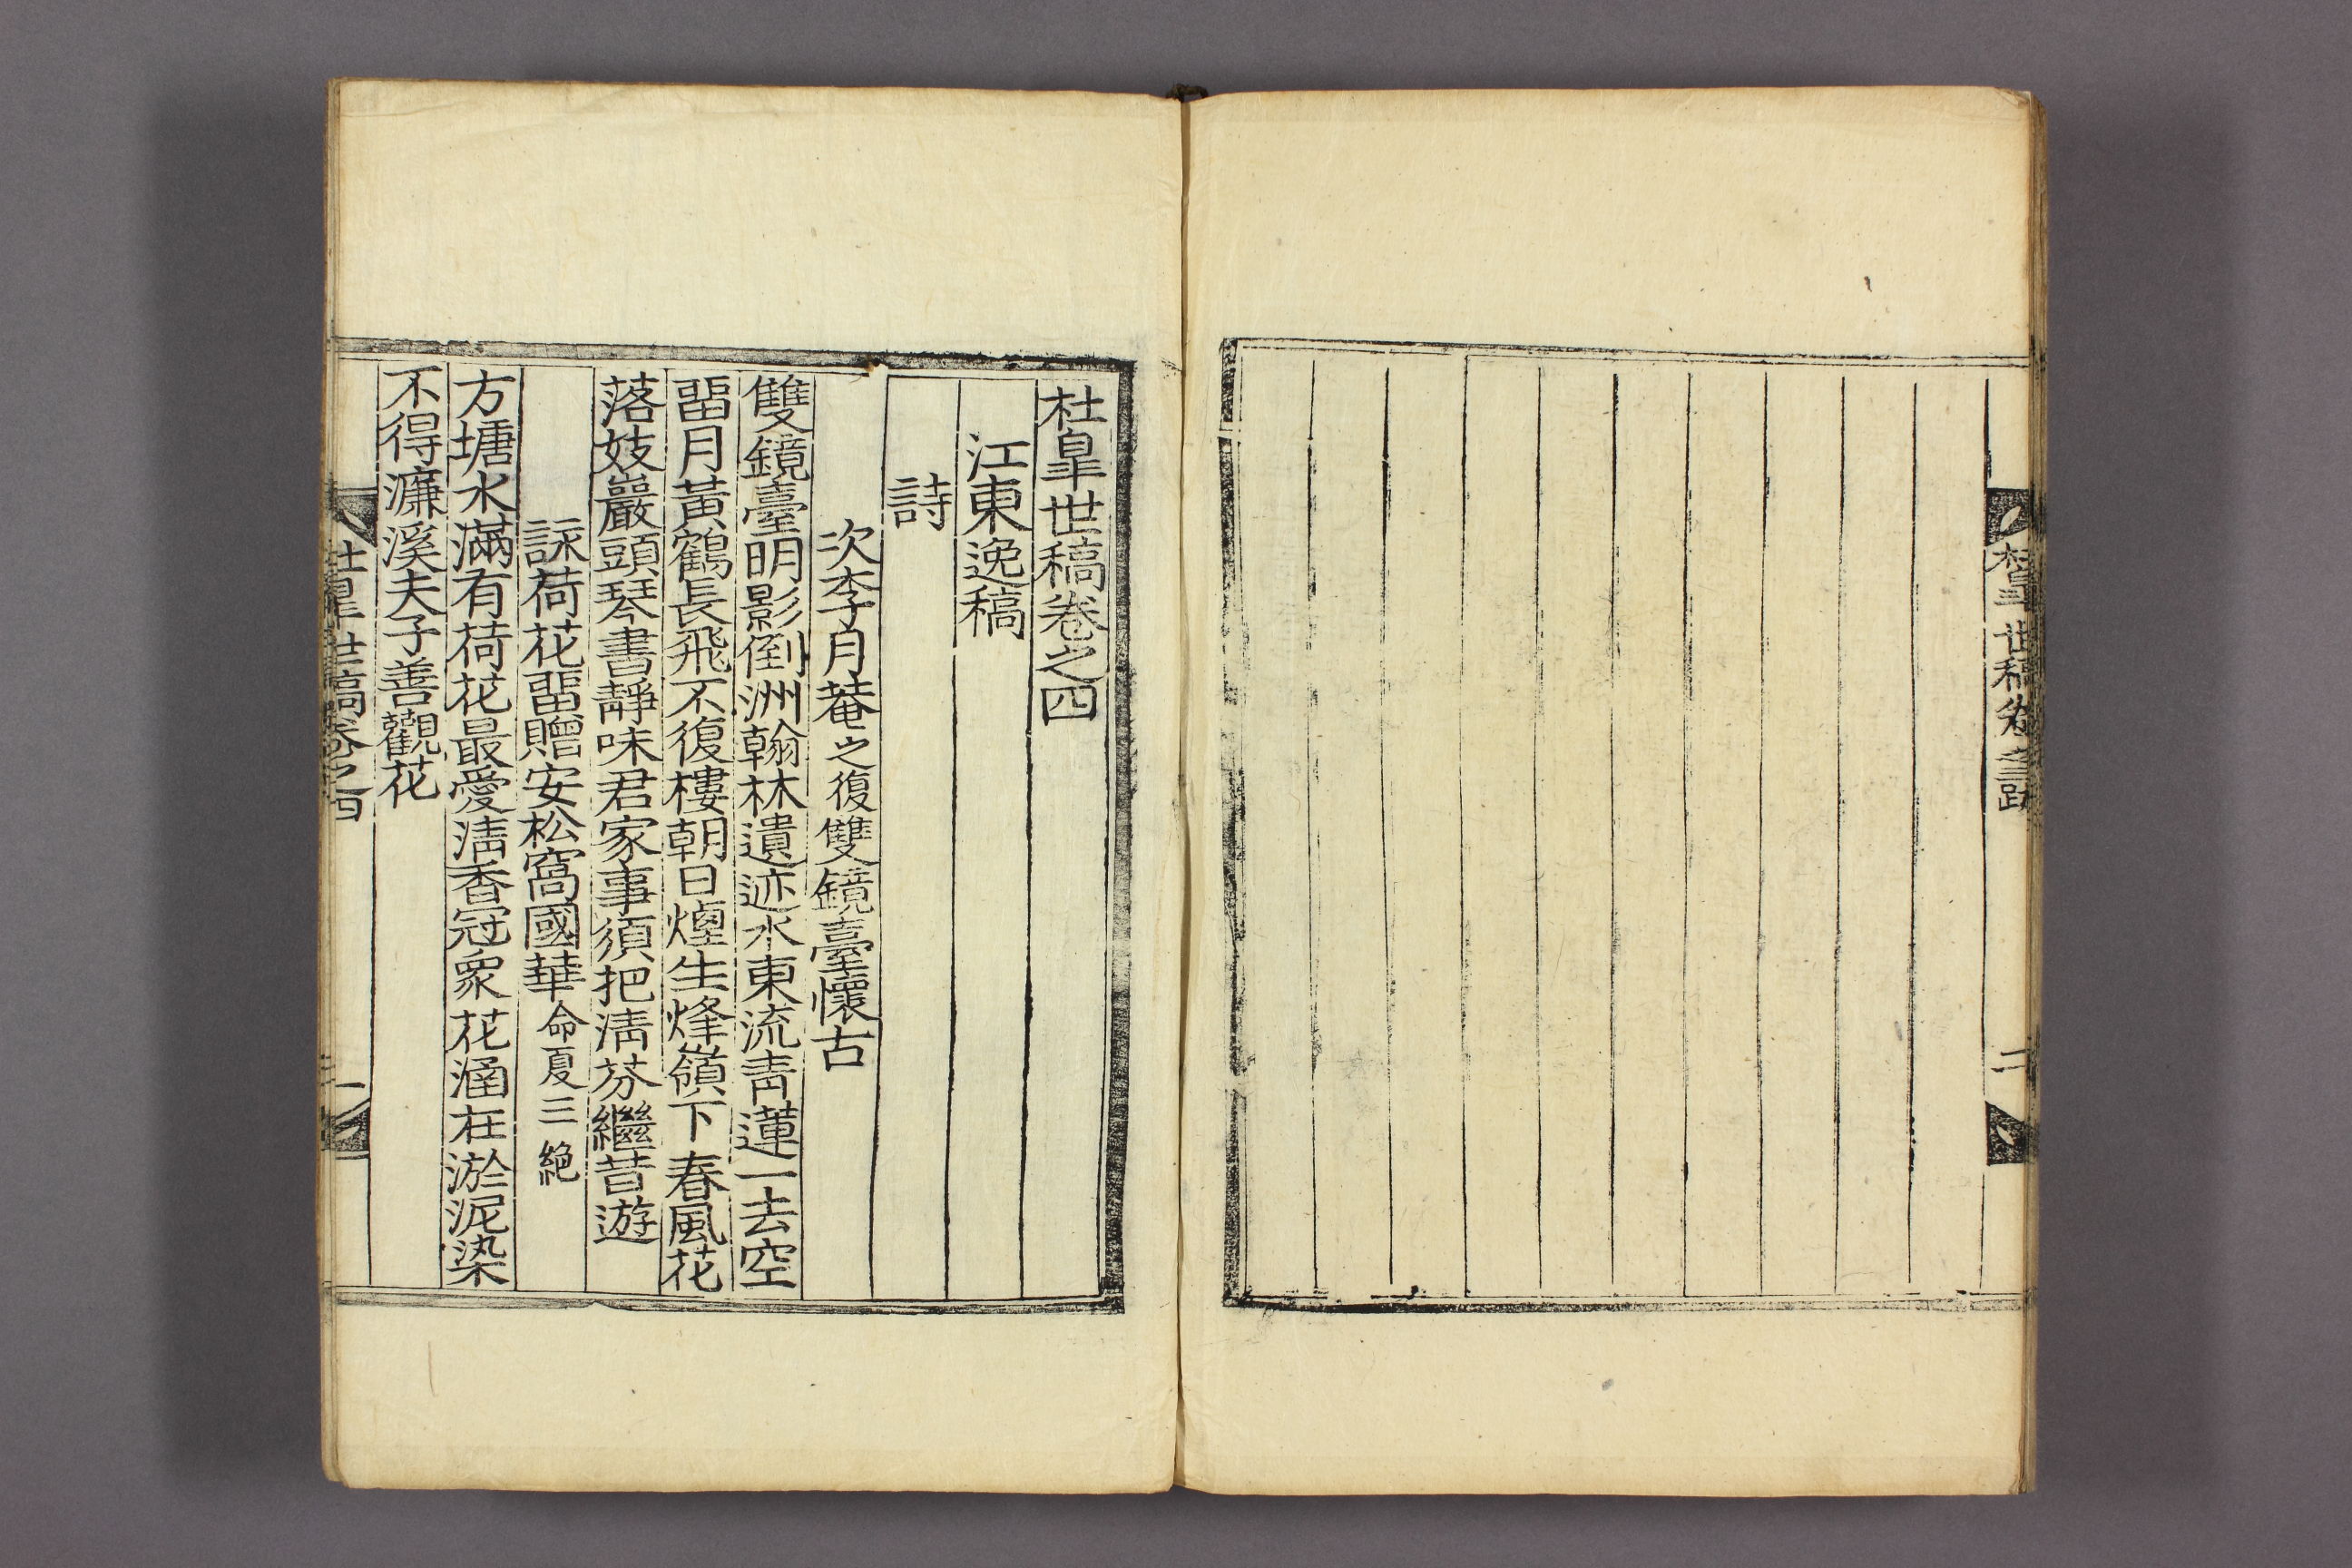 杜皐世稿卷之
二
杜皐世稿卷之四
江東逸稿
詩
次李月菴之復雙鏡臺懷古
雙鏡臺明影倒洲翰林遺迹水東流靑蓮一去空
畱月黃鶴長飛不復樓朝日煙生烽嶺下春風花
落妓巖頭琴書靜味君家事須把淸芬繼昔遊
詠荷花畱贈安松窩國華命夏三絶
方塘水滿有荷花最愛淸香冠衆花涵在淤泥染
不得濂溪夫子善觀花
杜皐世稿卷之四
一